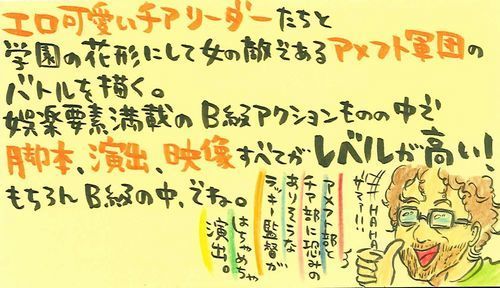 エロ可愛いチアリーダーたちと
学園の花形にして女の敵であるアメフト軍団の
バトルを描く。
娯楽要素満載のB級アクションものの中で
脚本、演出、映像すべてがレベルが高い!
もちろんB級の中、でね。
アメフト部と
チア部に恐みの
ありそうな
ラッキー監督が
はちゃめちゃ
演出。
HAHA